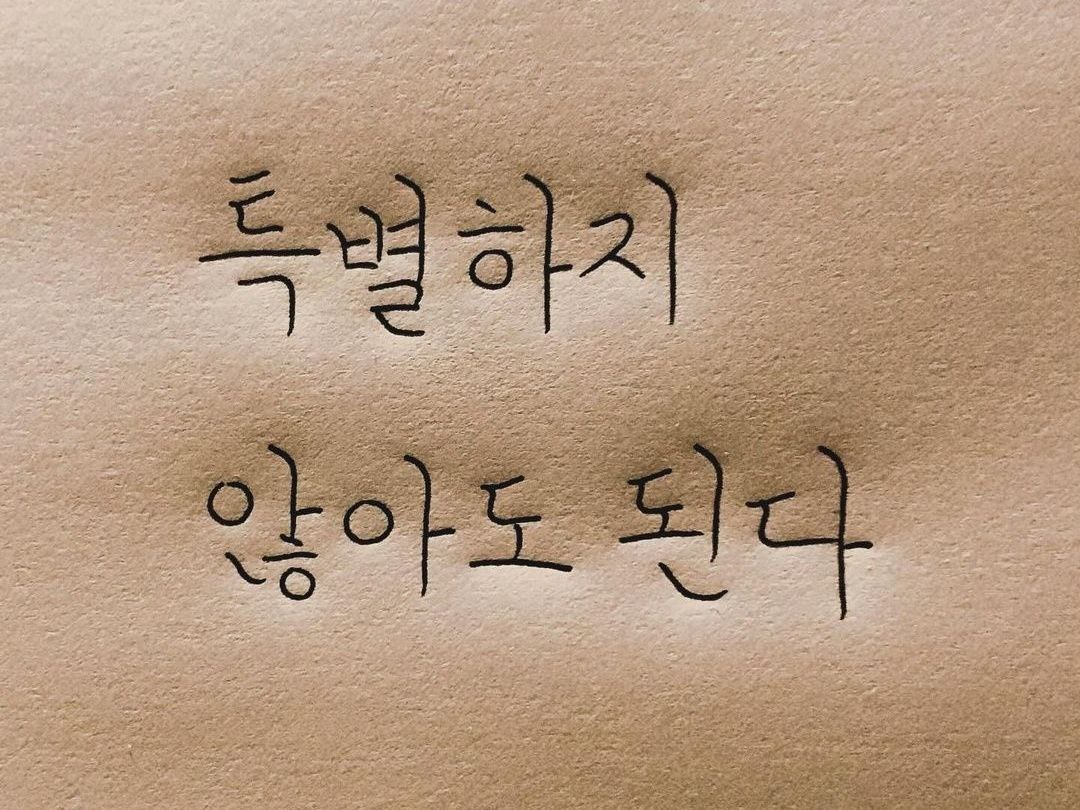 특별하지
않아도 된다